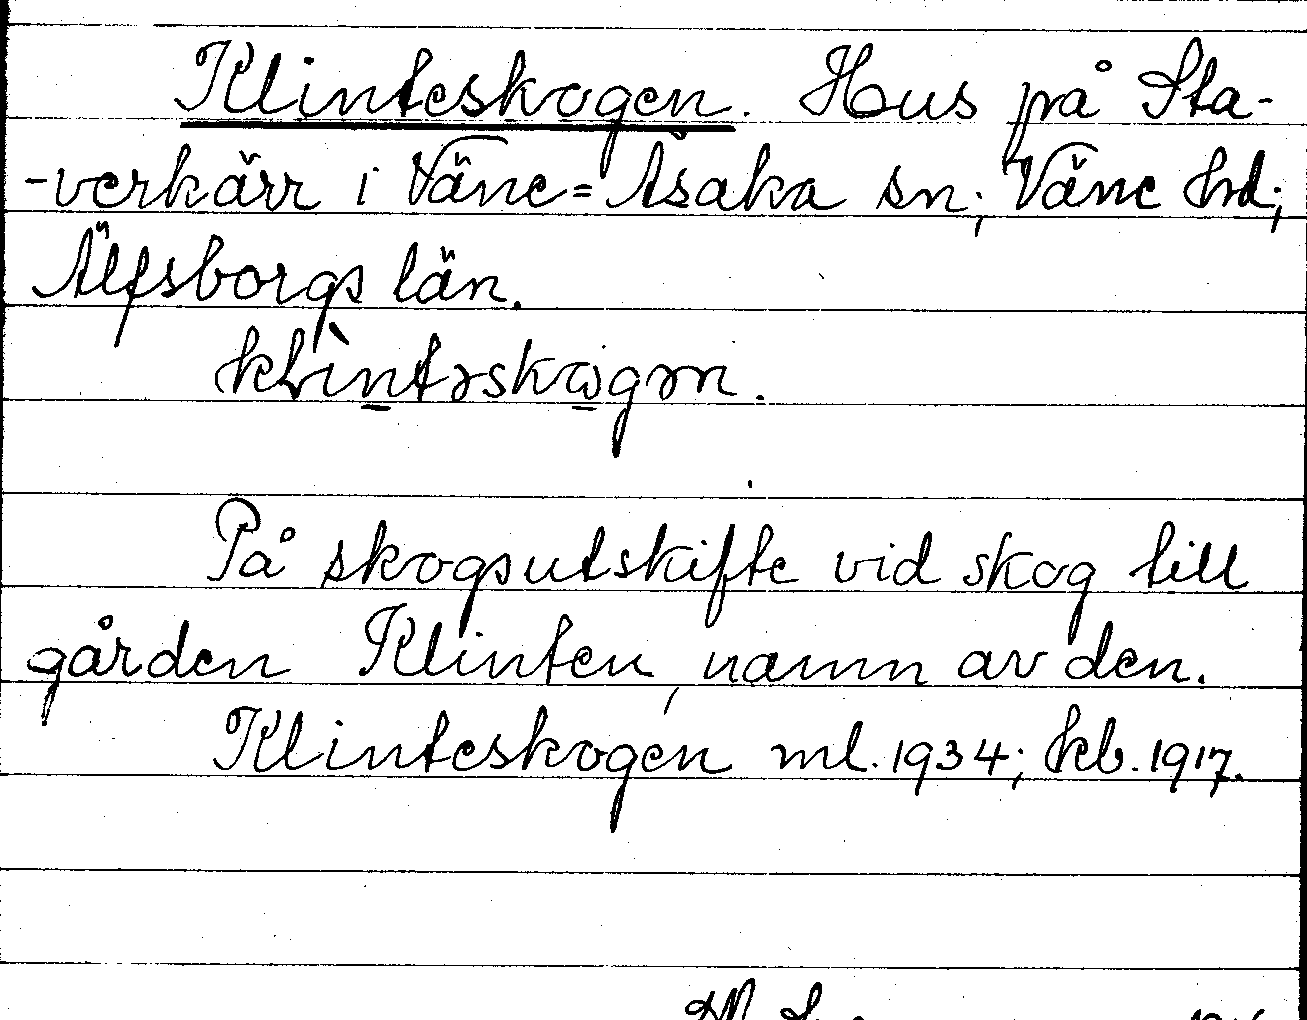 Klinteskogen. Hus på Sta-
-verkärr i Väne=Åsaka sn; Väne hd;
Älfsborgs län.
På skogsutskifte vid skog till
gården Klinten, namn av den.
Klinteskogen ml. 1934; kb. 1917.